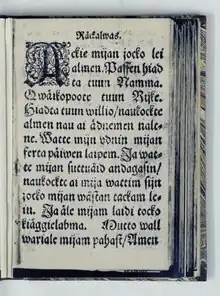 Räckalwas.
Ackie mijan jocko lei
almen. Passen hiad
ta tuun Namma.
Qwåikopoote tuun Rijke.
Hiadta tuun willio / naukockte
almen nau ai ädnemen nale-
ne. Watte mijn udnin mijan
ferta päiwen laipem. Ja wat-
te mijan suttuid andagasin /
naukockte ai mija wattim sijn
jocko mijan wastan tackam le-
in. Ja ale mijam laidi tocko
kiäggielabma. Mutto wall
wariale mijam pahast / Amen